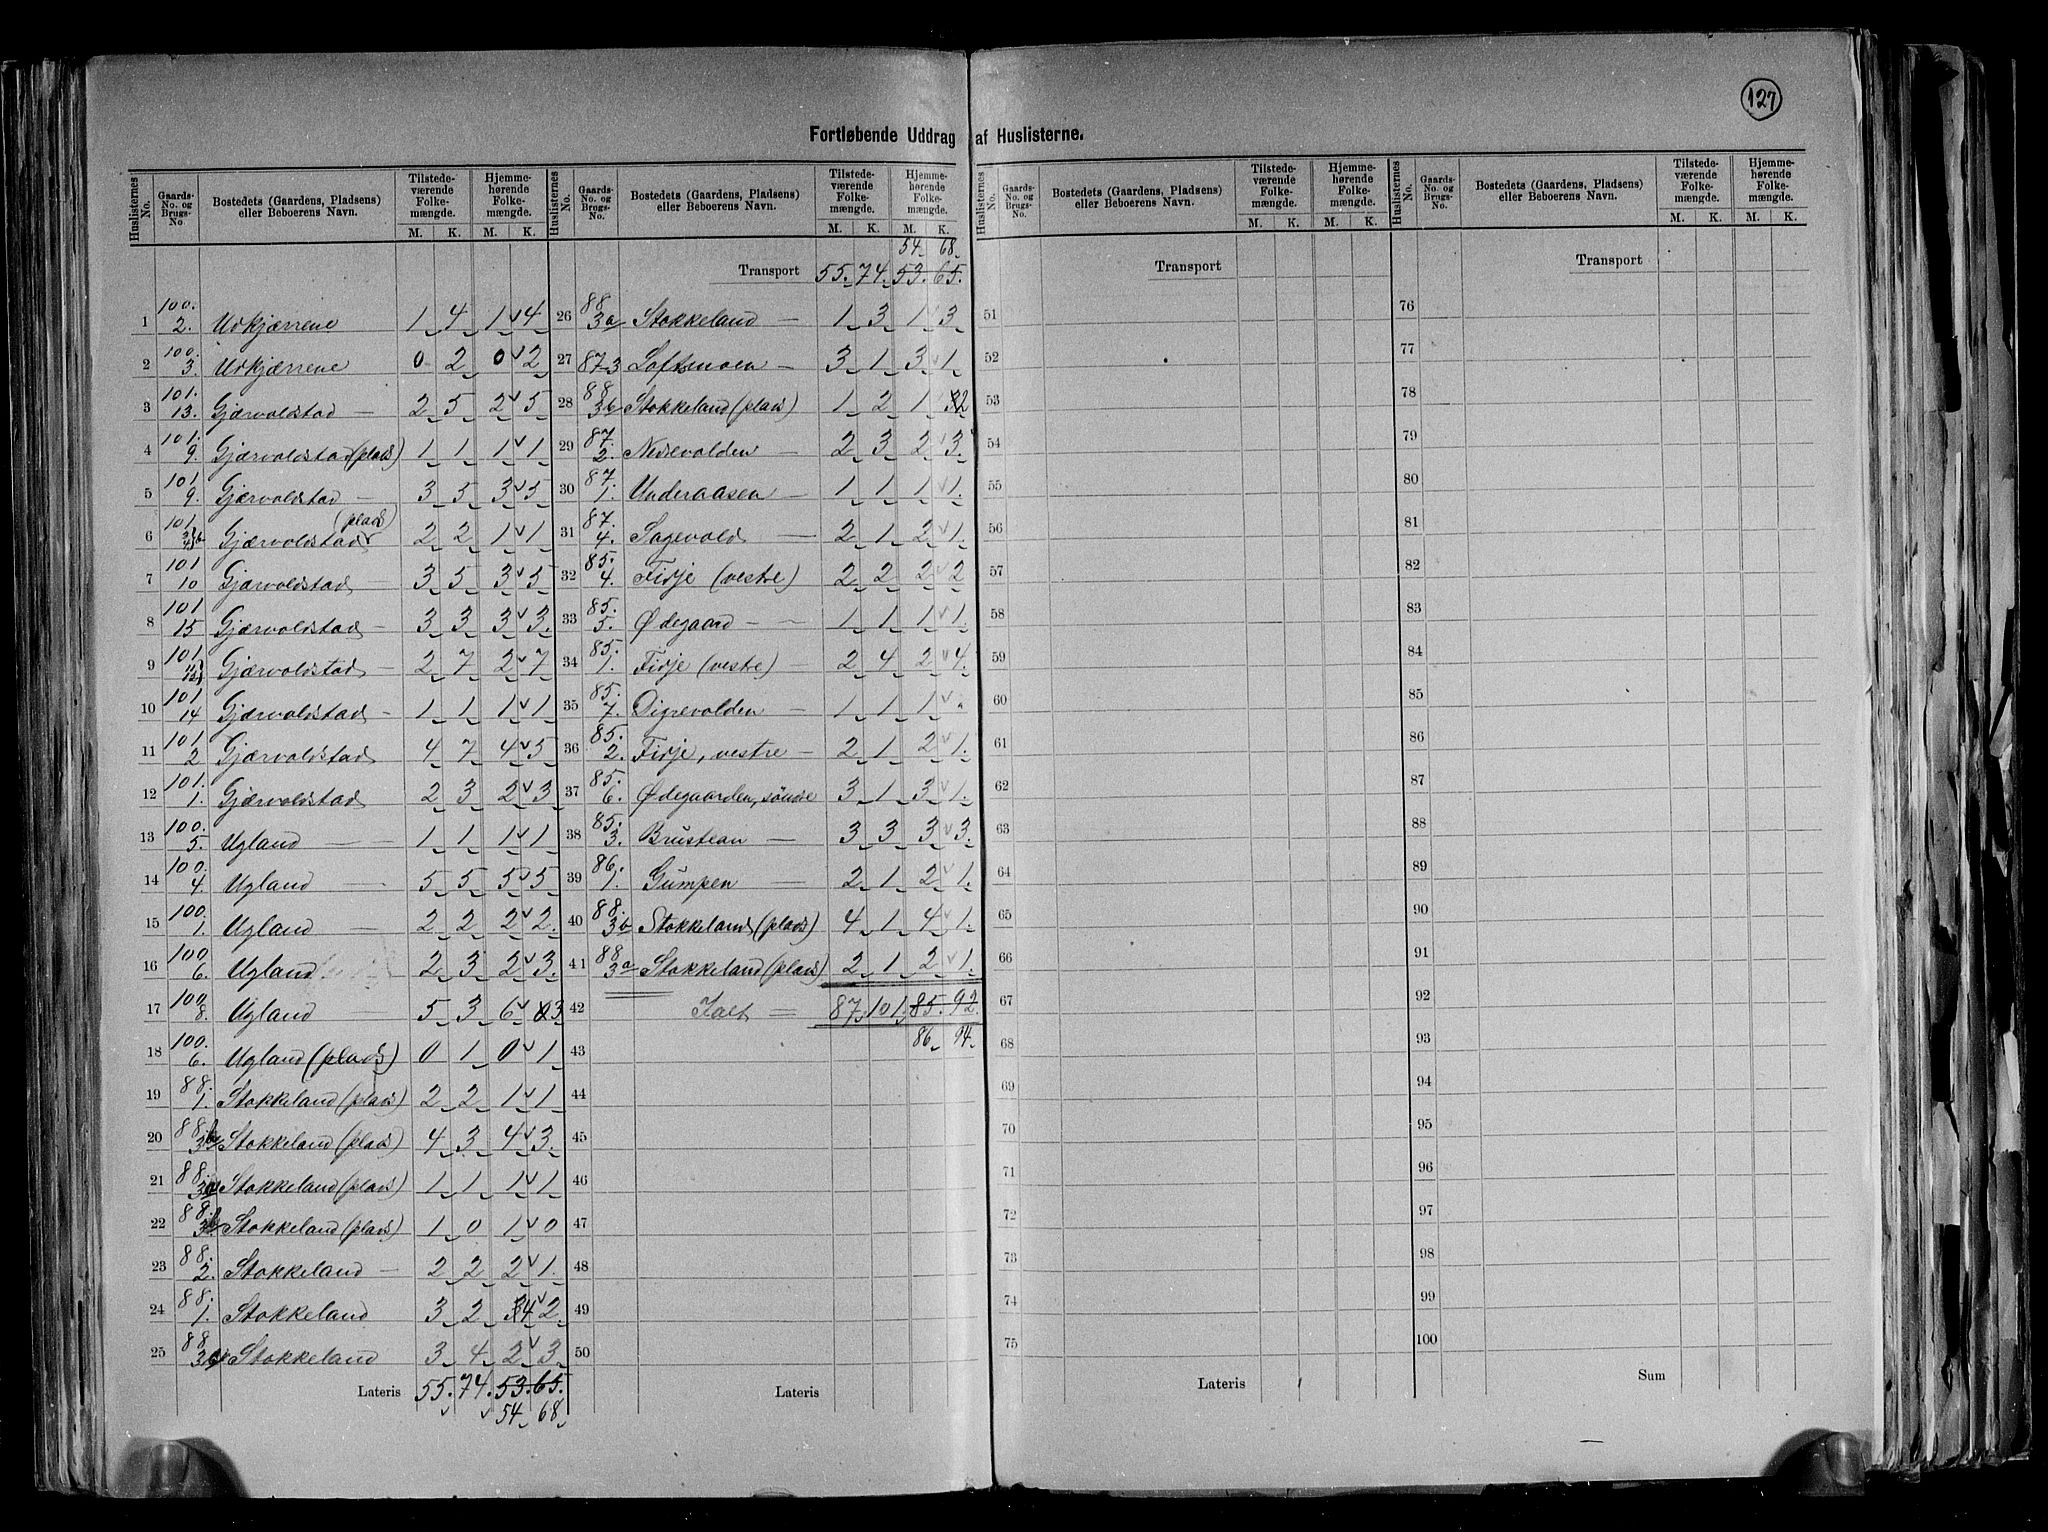 127
Fortløbende Uddrag af Huslisterne.
Huslisternes No. Gaards-No. og Brugs-No. Bostedets (Gaardens, Pladsens) eller Beboerens Navn. Tilstedeværende Folkemængde. M. K. Hjemmehørende Folkemængde. M. K.
1 100. 2. Udkjærrene 1 4 1 4
2 100. 3. Udkjærrene 0 2 0 2
3 101. 13. Gjærvoldstad 2 5 2 5
4 101. 9. Gjærvoldstad (plads) 1 1 1 1
5 101. 9. Gjærvoldstad 3 5 3 5
6 101 Gjærvoldstad (plads) 2 2 1 1
7 101 10 Gjærvoldstad 3 5 3 5
8 101 15 Gjærvoldstad 3 3 3 3.
9 101 Gjærvoldstad 2 7 2 7
10 101 14 Gjærvoldstad 1 1 1 1
11 101 2 Gjærvoldstad 4 7 4 5
12 101. 1. Gjærvoldstad 2 3 2 3
13 100. 5. Ugland 1 1 1 1
14 100. 4. Ugland 5 5 5 5
15 100. 1. Ugland 2 2 2 2.
16 100 6. Ugland 2 3 2 3.
17 100. 8. Ugland 5 3 6 3
18 100. 6. Ugland (plads) 0 1 0 1
19 88. 1. Stokkeland (plads) 2 2 1 1
20 88. 3b Stokkeland (plads) 4 3 4 3.
21 88. 3a Stokkeland (plads) 1 1 1 1
22 88. 3b Stokkeland (plads) 1 0 1 0
23 88. 2. Stokkeland 2 2 2 1.
24 88. 1. Stokkeland 3 2 4 2
25 88 Stokkeland 3 4 2 3
Lateris 55. 74. 53. 65.
54 68
Huslisternes No. Gaards-No. og Brugs-No. Bostedets (Gaardens, Pladsens) eller Beboerens Navn. Tilstedeværende Folkemængde. M. K. Hjemmehørende Folkemængde. M. K.
54. 68.
Transport 55. 74. 53. 65.
26 88 3a Stokkeland 1 3 1 3
27 87-3 Loftsmoen 3 1 3 1
28 88 3b Stokkeland (plads) 1 2 1 2
29 87. 2. Nedevolden 2 3 2 3
30 87. 1. Underaasen 1 1 1 1.
31 87. 4. Sagevold 2 1 2 1.
32 85. 4. Fidje (vestre) 2 2 2 2
33 85. 5. Ødegaard 1 1 1 1.
34 85. 1. Fidje (vestre) 2 4 2 4.
35 85. 7. Digrevolden 1 1 1
36 85. 2. Fidje, vestre 2 1 2 1.
37 85. 6. Ødegaarden, søndre 3 1 3 1.
38 85. 3. Brustean 3 3 3 3.
39 86. 1. Gumpen 2 1 2 1.
40 88. 3b Stokkeland (plads) 4 1 4 1.
41 88 3a Stokkeland (plads) 2 1 2 1.
42 Ialt 87 101 85. 92.
43 86 94.
44
45
46
47
48
49
50
Lateris
Huslisternes No. Gaards-No. og Brugs-No. Bostedets (Gaardens, Pladsens) eller Beboerens Navn. Tilstedeværende Folkemængde. M. K. Hjemmehørende Folkemængde. M. K.
Transport
51
52
53
54
55
56
57
58
59
60
61
62
63
64
65
66
67
68
69
70
71
72
73
74
75
Lateris
Huslisternes No. Gaards-No. og Brugs-No. Bostedets (Gaardens, Pladsens) eller Beboerens Navn. Tilstedeværende Folkemængde. M. K. Hjemmehørende Folkemængde. M. K.
Transport
76
77
78
79
80
81
82
83
84
85
86
87
88
89
90
91
92
93
94
95
96
97
98
99
100
Sum